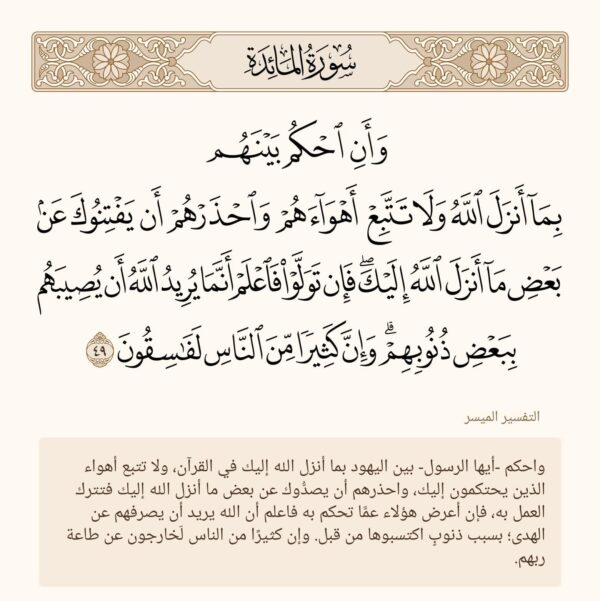 سُورَةُ المَائِدَةِ
وَأَنِ ٱحْكُم بَيْنَهُم
بِمَآ أَنزَلَ ٱللَّهُ وَلَا تَتَّبِعْ أَهْوَآءَهُمْ وَٱحْذَرْهُمْ أَن يَفْتِنُوكَ عَنۢ
بَعْضِ مَآ أَنزَلَ ٱللَّهُ إِلَيْكَۖ فَإِن تَوَلَّوْا۟ فَٱعْلَمْ أَنَّمَا يُرِيدُ ٱللَّهُ أَن يُصِيبَهُم
بِبَعْضِ ذُنُوبِهِمْۗ وَإِنَّ كَثِيرًا مِّنَ ٱلنَّاسِ لَفَـٰسِقُونَ ٤٩
التفسير الميسر
واحكم -أيها الرسول- بين اليهود بما أنزل الله إليك في القرآن، ولا تتبع أهواء
الذين يحتكمون إليك، واحذرهم أن يصدُّوك عن بعض ما أنزل الله إليك فتترك
العمل به، فإن أعرض هؤلاء عمَّا تحكم به فاعلم أن الله يريد أن يصرفهم عن
الهدى؛ بسبب ذنوبٍ اكتسبوها من قبل. وإن كثيرًا من الناس لَخارجون عن طاعة
ربهم.